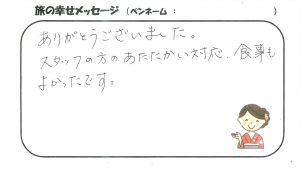 旅の幸せメッセージ (ペンネーム : )
ありがとうございました。
スタッフの方のあたたかい対応、食事も
よかったです。